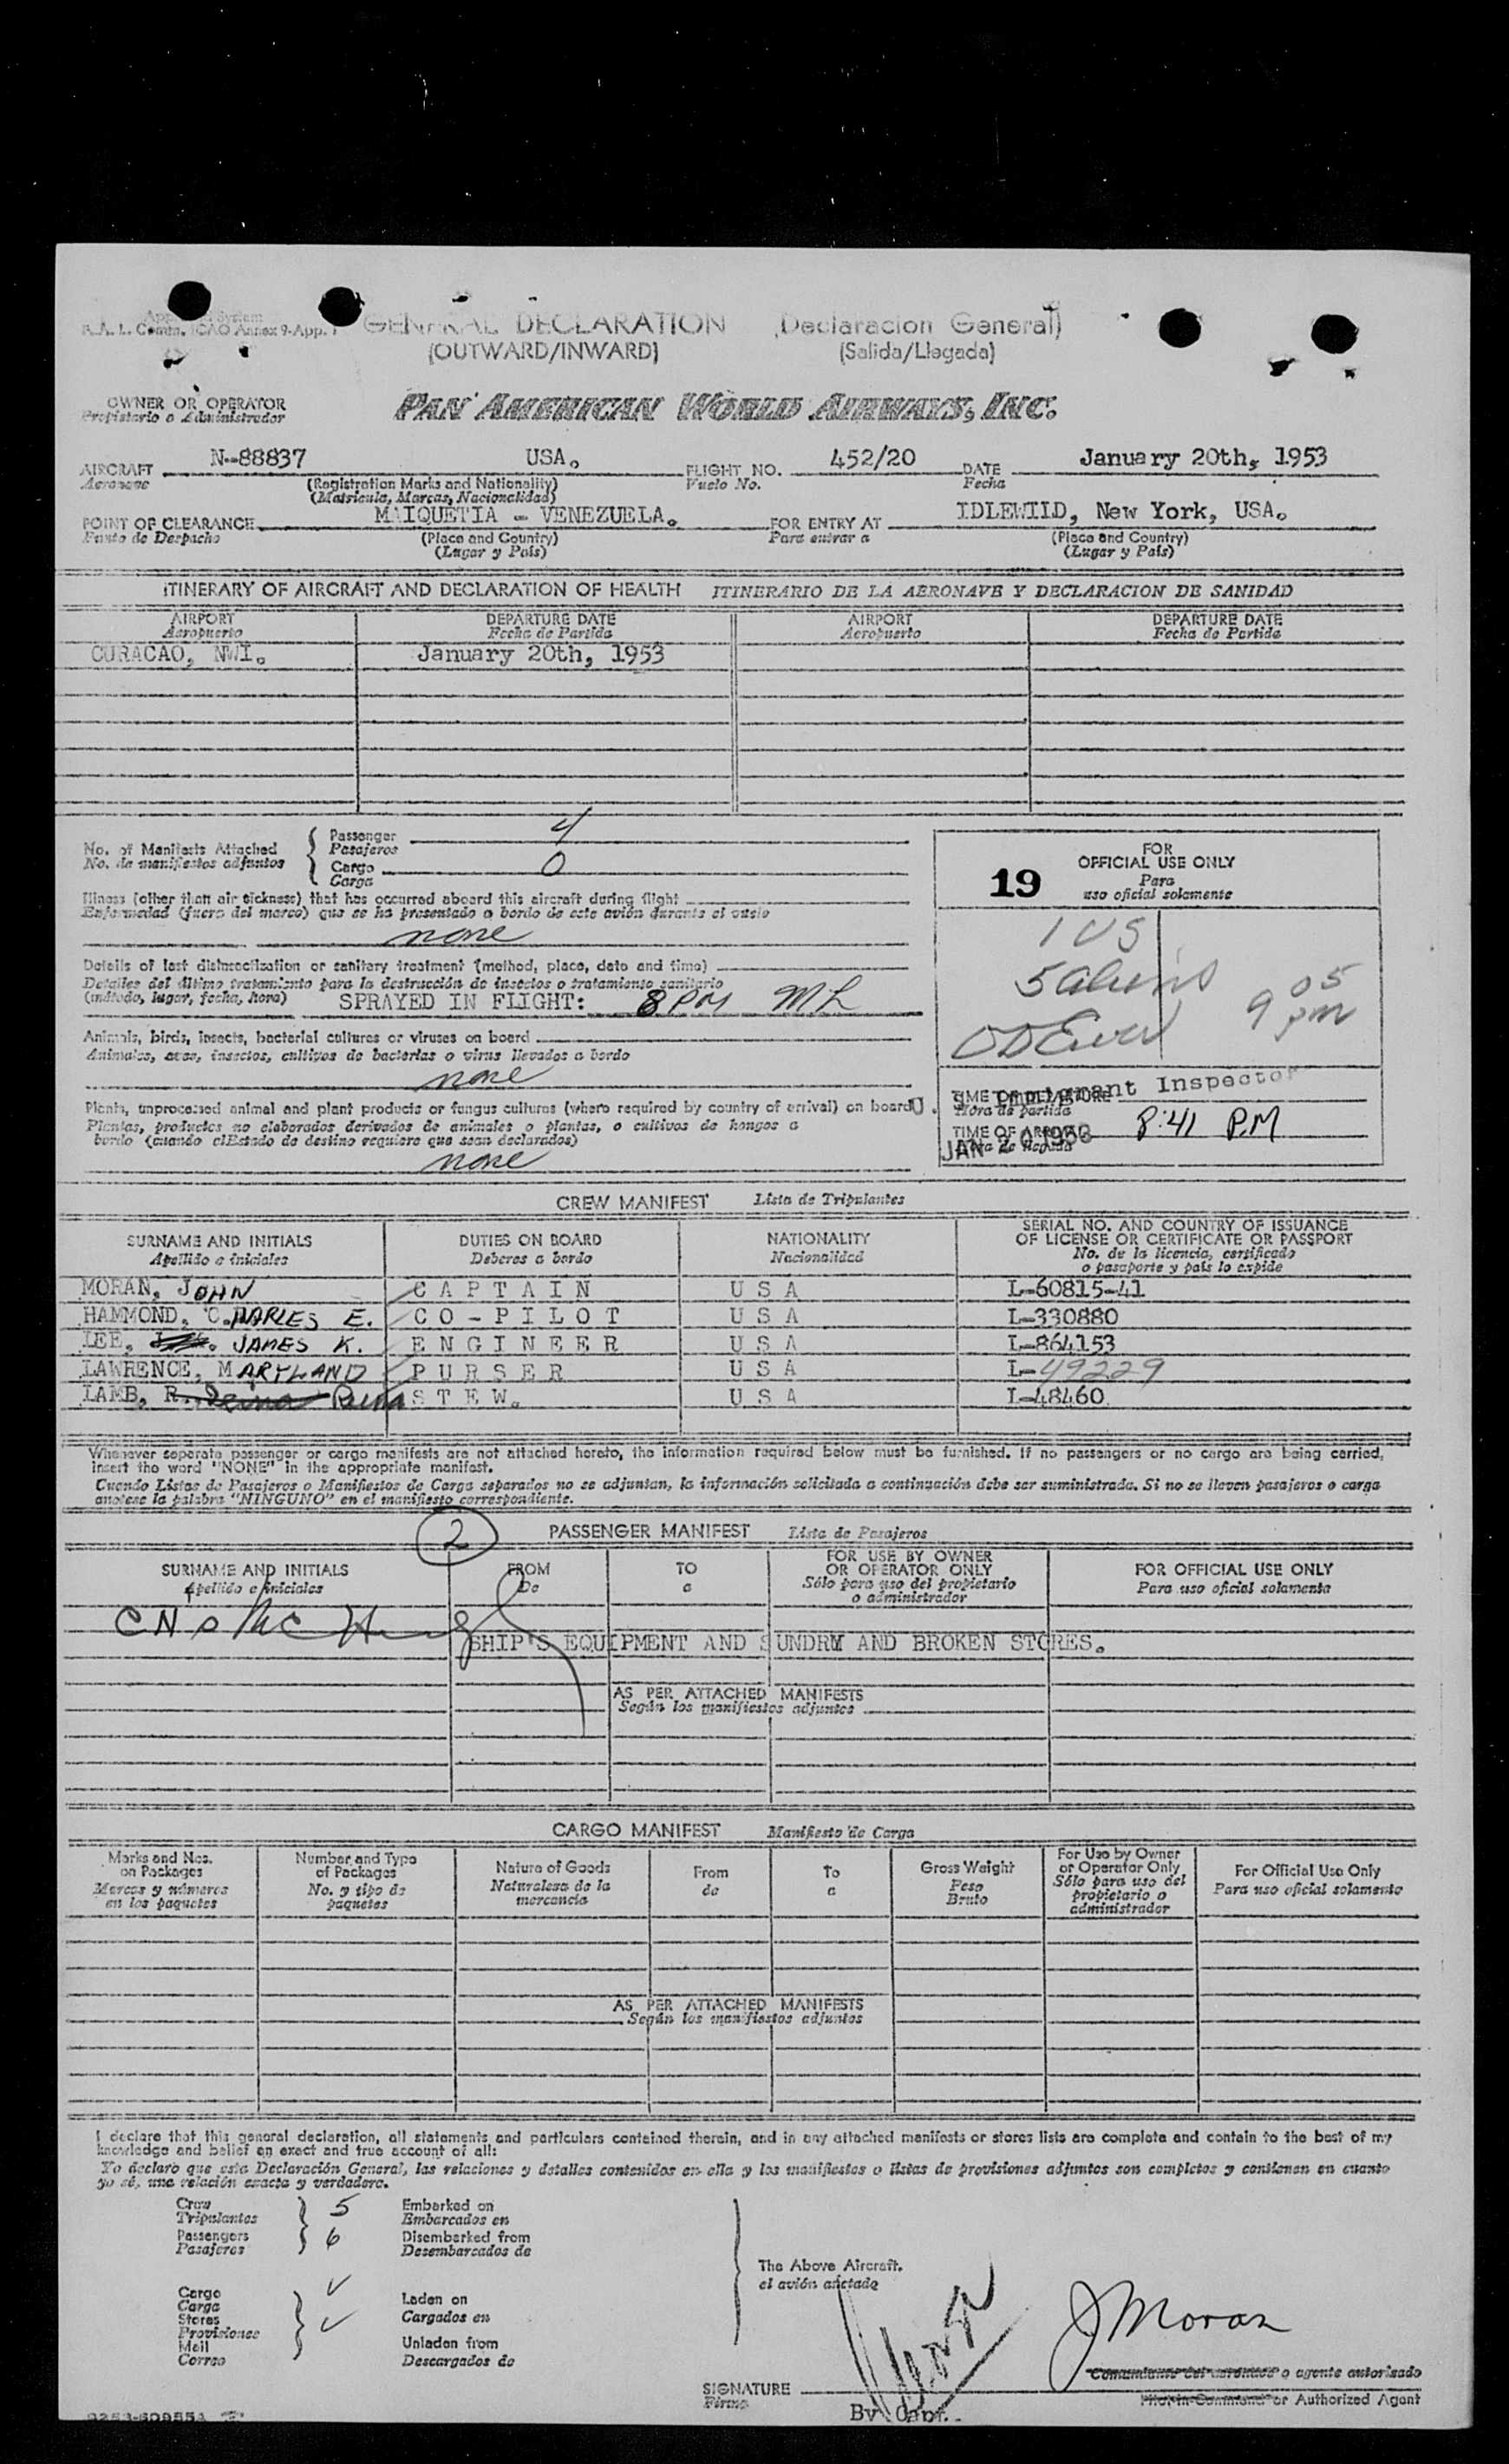 R.A.L. Comm. ICAO Annex 9-App. 1
GENERAL DECLARATION (Declaracion General)
(OUTWARD/INWARD) (Salida/Llegada)
OWNER OR OPERATOR
Propietario o Administrador
PAN AMERICAN WORLD AIRWAYS, INC.
AIRCRAFT N-88837 USA. FLIGHT NO. 452/20 DATE January 20th, 1953
Aeronave (Registration Marks and Nationality) Vuelo No. Fecha
(Matricula, Marcas, Nacionalidad)
POINT OF CLEARANCE MAIQUETIA - VENEZUELA. FOR ENTRY AT IDLEWIID, New York, USA.
Punto de Despacho (Place and Country) Para entrar a (Place and Country)
(Lugar y País) (Lugar y País)
ITINERARY OF AIRCRAFT AND DECLARATION OF HEALTH ITINERARIO DE LA AERONAVE Y DECLARACION DE SANIDAD
AIRPORT DEPARTURE DATE AIRPORT DEPARTURE DATE
Aeropuerto Fecha de Partida Aeropuerto Fecha de Partida
CURACAO, NWI. January 20th, 1953
No. of Manifests Attached
No. de manifiestos adjuntos
Passenger 4
Pasajeros
Cargo 0
Carga
Illness (other than air sickness) that has occurred aboard this aircraft during flight
Enfermedad (fuera del mareo) que se ha presentado a bordo de este avión durante el vuelo
none
Details of last disinsectization or sanitary treatment (method, place, date and time)
Detalles del último tratamiento para la destrucción de insectos o tratamiento sanitario
(método, lugar, fecha, hora) SPRAYED IN FLIGHT: 8 PM
Animals, birds, insects, bacterial cultures or viruses on board
Animales, aves, insectos, cultivos de bacterias o virus llevados a bordo
none
Plants, unprocessed animal and plant products or fungus cultures (where required by country of arrival) on board
Plantas, productos no elaborados derivados de animales o plantas, o cultivos de hongos a
bordo (cuando el Estado de destino requiere que sean declarados)
none
19
FOR
OFFICIAL USE ONLY
Para
uso oficial solamente
1 US
5 aliens
9 05 pm
Immigrant Inspector
TIME OF DEPARTURE
Hora de partida
TIME OF ARRIVAL 8:41 PM
Hora de llegada
JAN 20 1953
CREW MANIFEST Lista de Tripulantes
SURNAME AND INITIALS DUTIES ON BOARD NATIONALITY SERIAL NO. AND COUNTRY OF ISSUANCE
OF LICENSE OR CERTIFICATE OR PASSPORT
Apellido e iniciales Deberes a bordo Nacionalidad No. de la licencia, certificado
o pasaporte y país lo expide
MORAN, JOHN CAPTAIN USA L-60815-41
HAMMOND, CHARLES E. CO-PILOT USA L-330880
LEE, JAMES K. ENGINEER USA L-864153
LAWRENCE, MARYLAND PURSER USA L-49229
LAMB, R. STEW. USA L-48460
Whenever separate passenger or cargo manifests are not attached hereto, the information required below must be furnished. If no passengers or no cargo are being carried,
insert the word "NONE" in the appropriate manifest.
Cuando Listas de Pasajeros o Manifiestos de Carga separados no se adjuntan, la información solicitada a continuación debe ser suministrada. Si no se llevan pasajeros o carga
anotese la palabra "NINGUNO" en el manifiesto correspondiente.
2
PASSENGER MANIFEST Lista de Pasajeros
SURNAME AND INITIALS FROM TO FOR USE BY OWNER
OR OPERATOR ONLY FOR OFFICIAL USE ONLY
Apellido e iniciales De a Sólo para uso del propietario
o administrador Para uso oficial solamente
SHIP'S EQUIPMENT AND SUNDRY AND BROKEN STORES.
AS PER ATTACHED MANIFESTS
Según los manifiestos adjuntos
CARGO MANIFEST Manifiesto de Carga
Marks and Nos.
on Packages
Marcas y números
en los paquetes
Number and Type
of Packages
No. y tipo de
paquetes
Nature of Goods
Naturaleza de la
mercancía
From
de
To
a
Gross Weight
Peso
Bruto
For Use by Owner
or Operator Only
Sólo para uso del
propietario o
administrador
For Official Use Only
Para uso oficial solamente
AS PER ATTACHED MANIFESTS
Según los manifiestos adjuntos
I declare that this general declaration, all statements and particulars contained therein, and in any attached manifests or stores lists are complete and contain to the best of my
knowledge and belief an exact and true account of all:
Yo declaro que esta Declaración General, las relaciones y detalles contenidos en ella y los manifiestos o listas de provisiones adjuntos son completos y contienen en cuanto
yo sé, una relación exacta y verdadera.
Crew 5 Embarked on
Tripulantes Embarcados en
Passengers 6 Disembarked from
Pasajeros Desembarcados de
The Above Aircraft.
el avión anotado
Cargo
Carga
Stores
Provisiones
Mail
Correo
Laden on
Cargados en
Unladen from
Descargados de
J Moran
Comandante del aeronave o agente autorizado
SIGNATURE
Firma
Pilot in Command or Authorized Agent
By Capt.